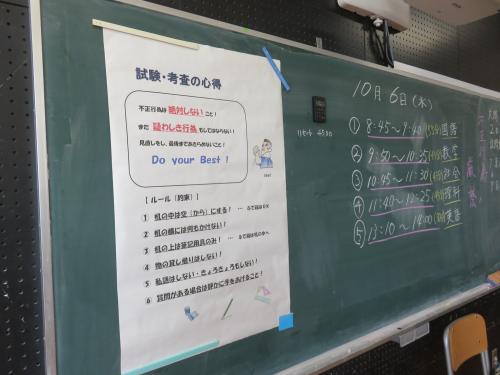 試験・考査の心得
不正行為は 絶対しない こと！
また 疑わしき行為 もしてはならない！
見直しをし、最後まであきらめないこと！
Do your Best !
【 ルール（約束） 】
① 机の中は空（から）にする！ …
② 机の横には何もかけない！
③ 机の上は筆記用具のみ！ …
④ 物の貸し借りはしない！
⑤ 私語はしない・きょろきょろもしない！
⑥ 質問がある場合は静かに手をあげること！
10月6日(木)
① 8:45～9:40 国語
② 9:50～10:35 数学
③ 10:45～11:30 社会
④ 11:40～12:25 理科
⑤ 13:10～14:00 英語